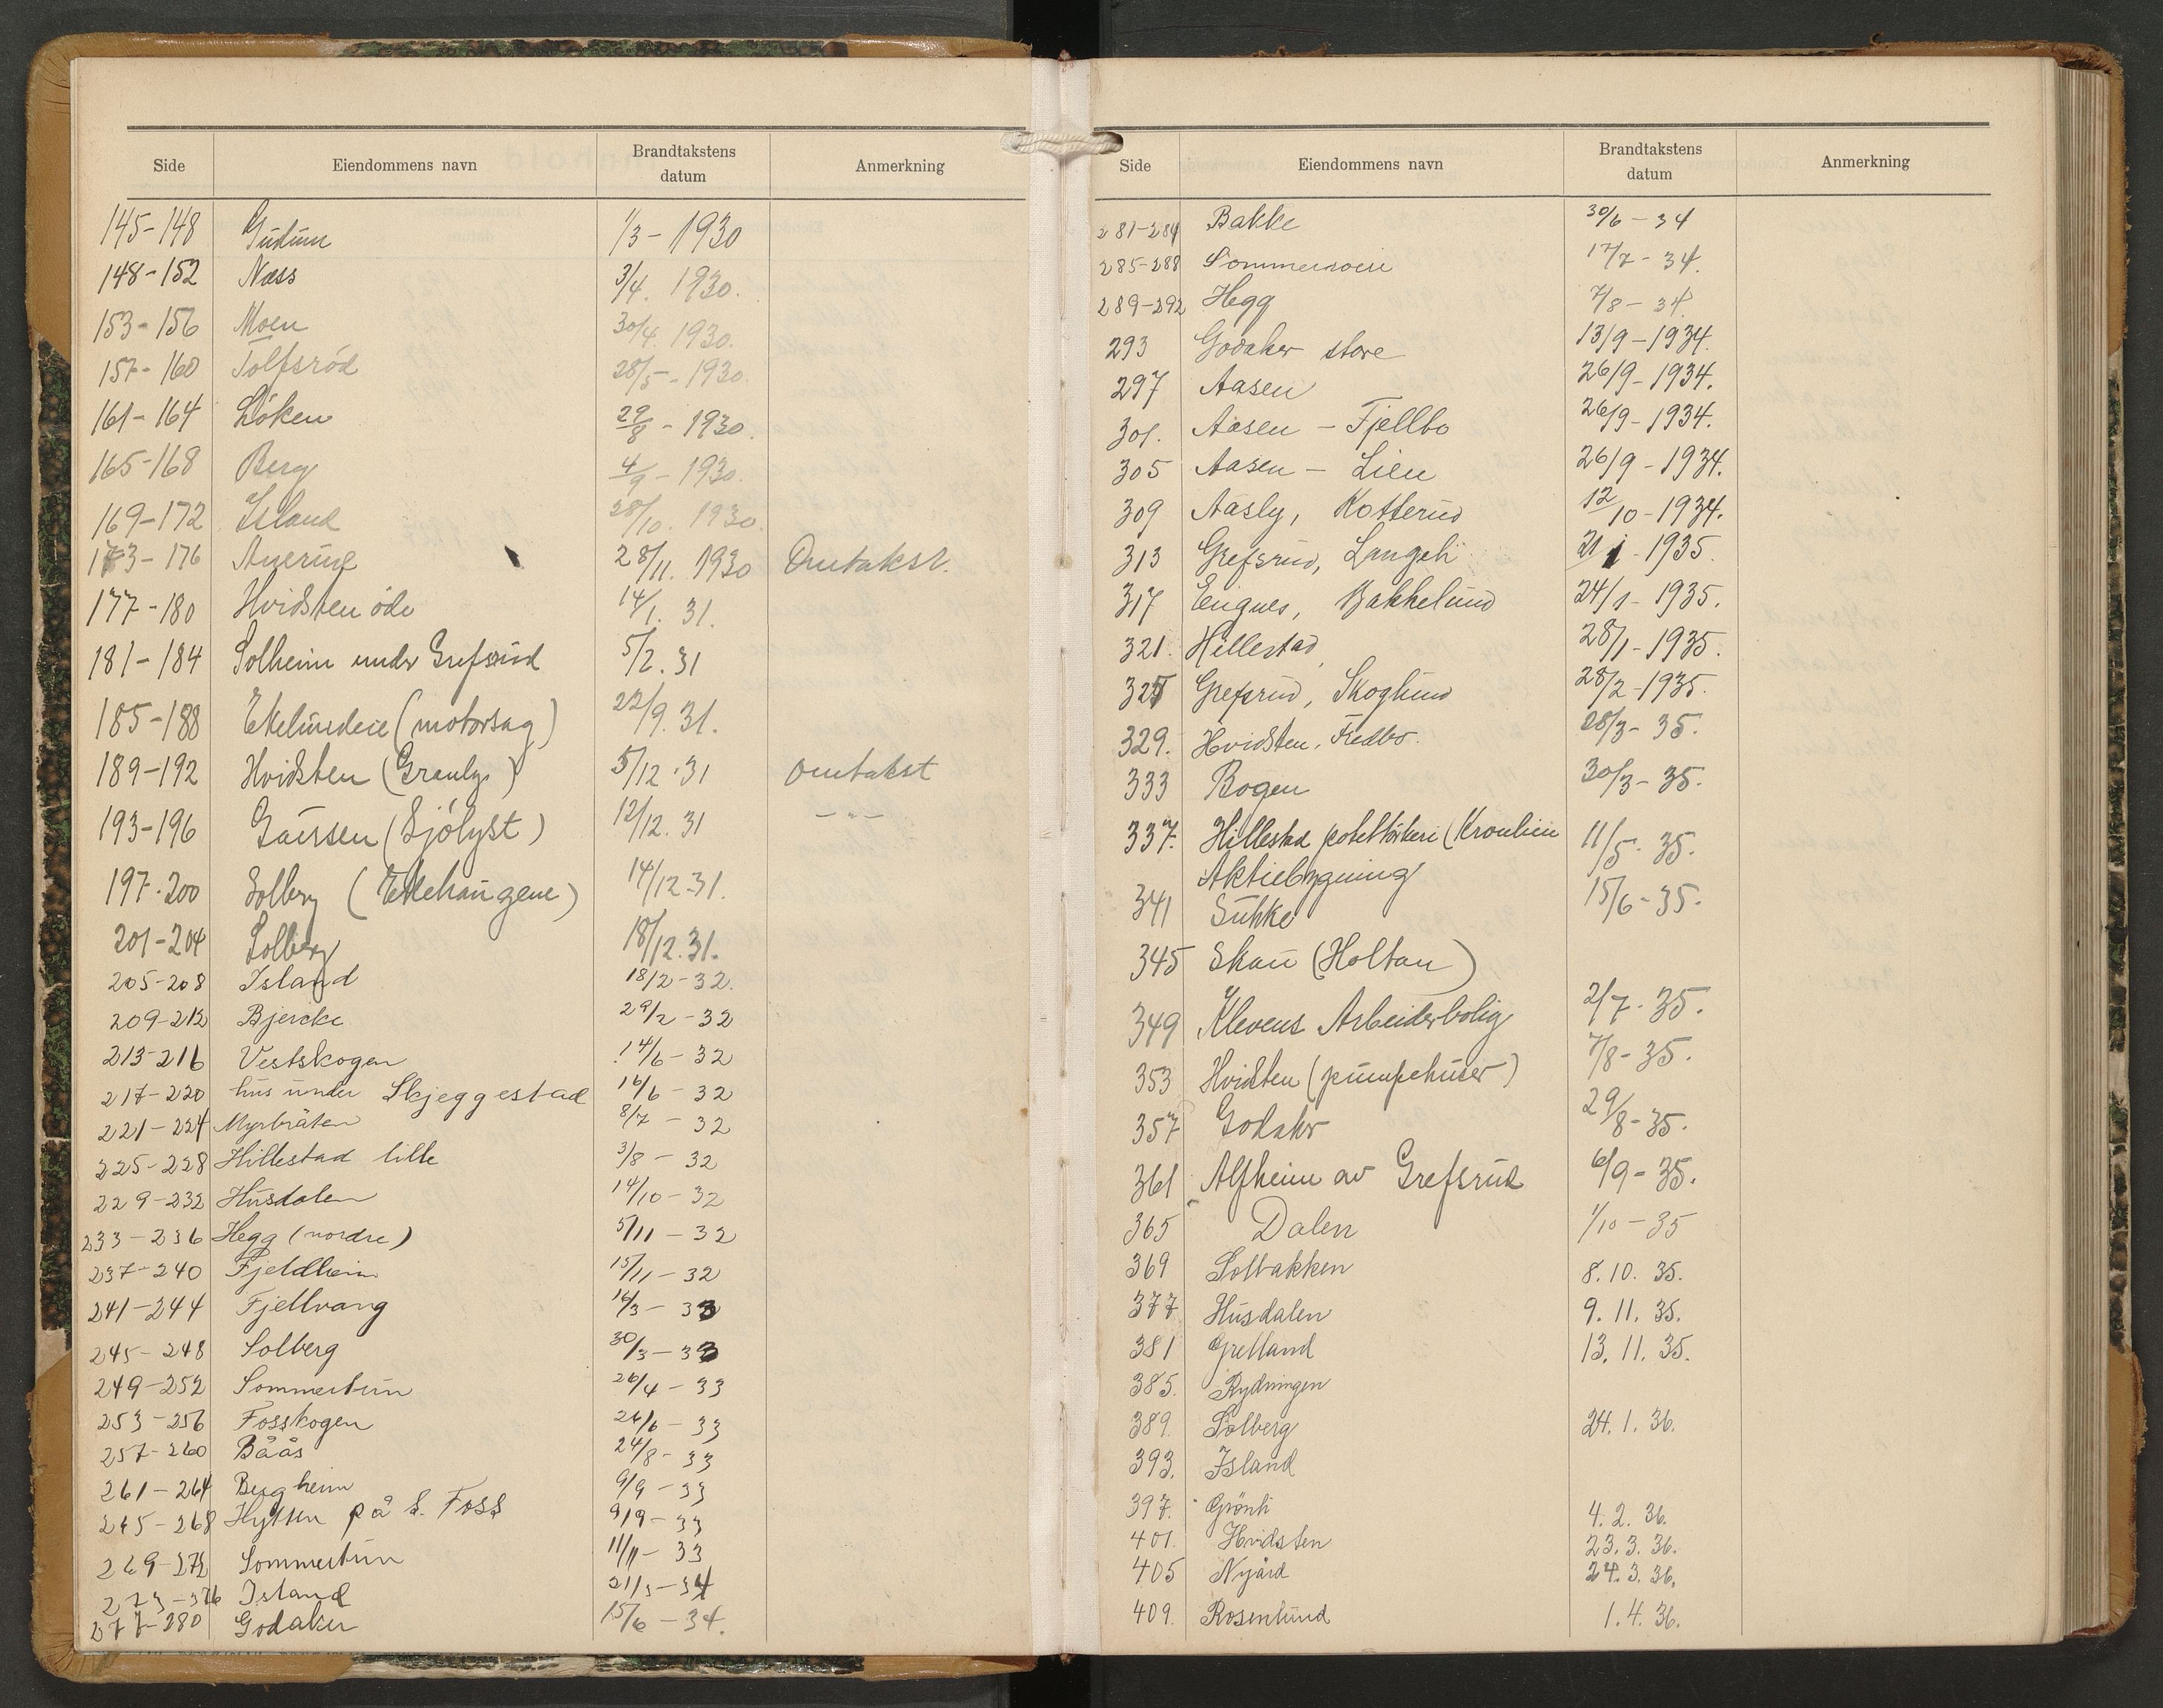 Side Eiendommens navn Brandtakstens datum Anmerkning
145-148 Gudum 1/3 - 1930
148-152 Næss 3/4. 1930.
153-156 Moen 30/4. 1930.
157-160 Tolfsröd 28/5 - 1930.
161-164 Löken 29/8 - 1930.
165-168 Berg 4/9 - 1930.
169-172 Island 28/10. 1930.
173-176 28/11. 1930 Omtakst.
177-180 Hvidsten öde 14/1. 31.
181-184 Solheim under Grefsrud 5/2. 31
185-188 Ekelundeie (motorsag) 22/9. 31.
189-192 Hvidsten 5/12 . 31 omtakst
193-196 (Sjölyst) 12/12. 31 - " -
197-200 Solberg (Eklehaugene) 14/12 . 31.
201-204 Solberg 18/12. 31.
205-208 Island 18/2 - 32.
209-212 Bjercke 29/2 - 32
213-216 Vestskogen 14/6 - 32
217-220 hus under Skjeggestad 16/6 - 32
221-224 Myrbråten 8/7 - 32
225-228 Hillestad lille 3/8 - 32
229-232 Husdalen 14/10 - 32
233-236 Hegg (nordre) 5/11 - 32
237-240 Fjeldheim 15/11 - 32
241-244 Fjellvang 16/3 - 33
245-248 Solberg 30/3 - 33
249-252 Sommertun 26/4 - 33
253-256 Fosskogen 26/6 - 33
257-260 Båås 24/8 - 33
261-264 Bergheim 9/9 - 33
265-268 Hytten på S. Foss 9/9 - 33
269-272 Sommertun 11/11 - 33
273-376 Island 21/3 - 34
277-280 Godaker 15/6 - 34.
Side Eiendommens navn Brandtakstens datum Anmerkning
281-284 Bakke 30/6 - 34
285-288 17/7 - 34.
289-292 Hegg 7/8 - 34.
293 Godaker store 13/9 - 1934.
297 Aasen 26/9 - 1934.
301. Aasen - Fjellbo 26/9 - 1934.
305 Aasen - Lien 26/9 - 1934.
309 Aasly, Kotterud 12/10 - 1934.
313 Grefsrud, Langeli 21/1 - 1935.
317 Eignes, Bakkelund 24/1 - 1935.
321. Hillestad 28/1 - 1935.
325 Grefsrud, Skoglund 28/2 - 1935.
329. Hvidsten, Fredbo. 28/3 - 35.
333 Bogen 30/3 - 35.
337. Hillestad potettörkeri (Kronlien 11/5 - 35.
Aktiebygning
341 Suhke 15/6 - 35.
345 Skau (Holtan)
349 Klevens Arbeiderbolig 2/7 - 35.
353 Hvidsten (pumpehuser) 7/8 - 35.
357 Godaker 29/8 - 35.
361 Alfheim av Grefsrud 6/9 - 35.
365 Dalen 1/10 - 35
369 Solbakken 8. 10. 35.
377 Husdalen 9. 11. 35.
381 Grelland 13. 11. 35.
385. Rydningen
389. Solberg 24. 1. 36.
393. Island
397. Grönli 4. 2. 36.
401. Hvidsten 23. 3. 36.
405 Nyård 24. 3. 36.
409. Rosenlund 1. 4. 36.